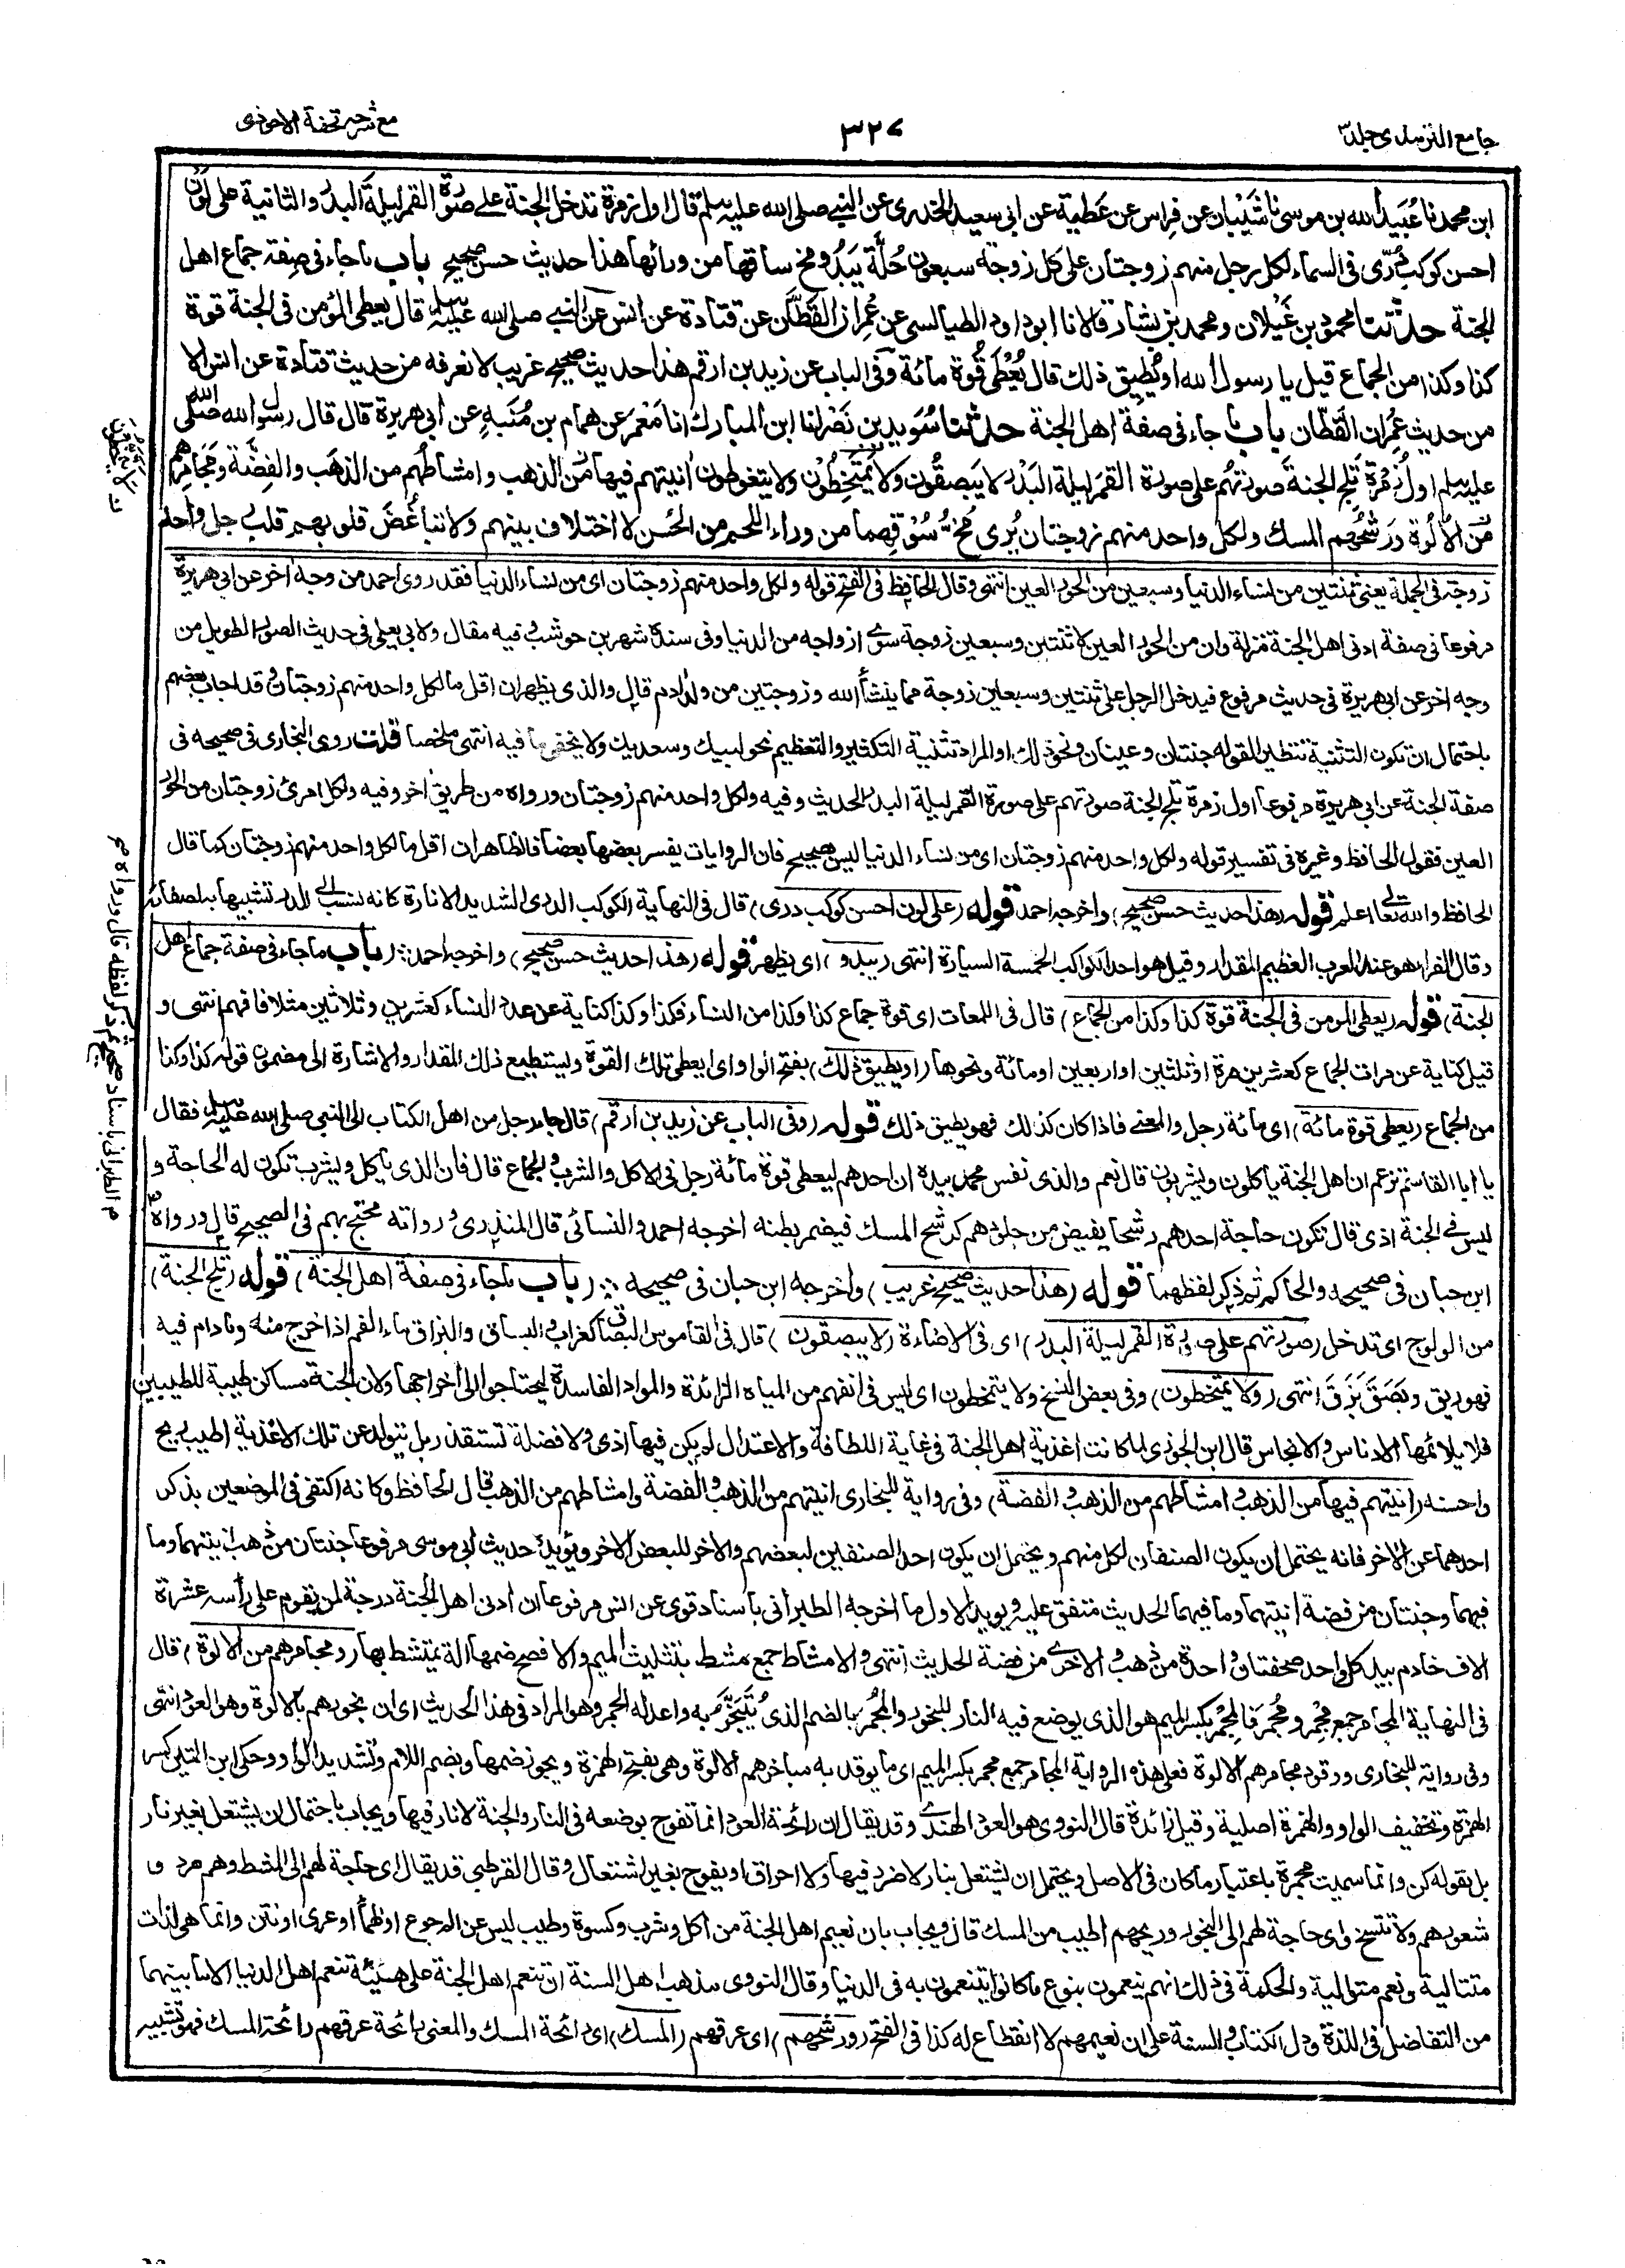 جامع الترمذى جلد٣
٣٢٧
مع شرحه تحفة الاحوذى
ابن محمد نا عُبَيد الله بن موسى نا شَيْبان عن فِراس عن عَطية عن ابى سعيد الخدرى عن النبى صلى الله عليه وسلم قال اول زمرة تدخل الجنة على صُورَة القمر ليلةَ البدر والثانية على لَوْن
احسن كوكب دُرّى فى السماء لكل رجل منهم زوجتان على كل زوجة سبعون حُلَّة يَبْدُو مخ ساقها من ورائها هذا حديث حسن صحيح باب ما جاء فى صِفة جماع اهل
الجنة حدثنا محمود بن غَيْلان ومحمد بن بشار قالا نا ابو داود الطيالسى عن عِمْران القَطّان عن قتادة عن انس عن النبى صلى الله عليه وسلم قال يعطى المؤمن فى الجنة قوة
كذا وكذا من الجماع قيل يا رسول الله اوَ يُطيق ذلك قال يُعْطَى قُوة مائة وفى الباب عن زيد بن ارقم هذا حديث صحيح غريب لا نعرفه من حديث قتادة عن انس الا
من حديث عِمران القَطّان باب ما جاء فى صفة اهل الجنة حدثنا سُوَيد بن نَصْر انا ابن المبارك انا مَعْمَر عن همام بن مُنَبهٍ عن ابى هريرة قال قال رسول الله صلى الله
عليه وسلم اول زُمْرة تَلِج الجنةَ صورتهُم على صورة القمر ليلة البَدْر لا يَبصقُون وَلا يَمْتَخِطُوْنَ ولا يتغوطون اٰنيتهم فيها من الذهب وامشاطُهم من الذهَب والفِضَّة ومَجامرُهم
من الأَلُوة ورَشْحُهم المسك ولكل واحد منهم زوجتان يُرى مُخ سُوْقهما من وراء اللحم من الحُسن لا اختلاف بينهم ولا تباغُضَ قلوبهم قلب رجل واحد
زوجة فى الجملة يعنى ثنتين من نساء الدنيا وسبعين من الحور العين انتهى وقال الحافظ فى الفتح قوله ولكل واحد منهم زوجتان اى من نساء الدنيا فقد روى احمد من وجه اخر عن ابى هريرة
مرفوعا فى صفة ادنى اهل الجنة منزلة وان من الحور العين لاثنتين وسبعين زوجة سوى ازواجه من الدنيا وفى سنده شهر بن حوشب وفيه مقال ولابى يعلى فى حديث الصور الطويل من
وجه اخر عن ابى هريرة فى حديث مرفوع فيدخل الرجل على ثنتين وسبعين زوجة مما ينشأ الله وزوجتين من ولد ادم قال والذى يظهر ان اقل ما لكل واحد منهم زوجتان وقد اجاب بعضهم
باحتمال ان تكون التثنية تنظيرا لقوله جنتان وعينان ونحو ذلك او المراد تثنية التكثير والتعظيم نحو لبيك وسعديك ولا يخفى ما فيه انتهى ملخصا قلت روى البخارى فى صحيحه فى
صفة الجنة عن ابى هريرة مرفوعا اول زمرة تلج الجنة صورتهم على صورة القمر ليلة البدر الحديث وفيه ولكل واحد منهم زوجتان ورواه من طريق اخر وفيه ولكل امرئ زوجتان من الحور
العين فقول الحافظ وغيره فى تفسير قوله ولكل واحد منهم زوجتان اى من نساء الدنيا ليس بصحيح فان الروايات يفسر بعضها بعضا فالظاهر ان اقل ما لكل واحد منهم زوجتان كما قال
الحافظ والله تعالى اعلم قوله (هذا حديث حسن صحيح) واخرجه احمد قوله (على لون احسن كوكب درى) قال فى النهاية الكوكب الدرى الشديد الانارة كانه نسب الى الدر تشبيها بصفائه
وقال الفراء هو عند العرب العظيم المقدار وقيل هو احد الكواكب الخمسة السيارة انتهى (يبدو) اى يظهر قوله (هذا حديث حسن صحيح) واخرجه احمد (باب ما جاء فى صفة جماع اهل
الجنة) قوله (يعطى المؤمن فى الجنة قوة كذا وكذا من الجماع) قال فى اللمعات اى قوة جماع كذا وكذا من النساء فكذا وكذا كناية عن عدد النساء كعشرين وثلاثين مثلا فافهم انتهى و
قيل كناية عن مرات الجماع كعشرين مرة او ثلثين او اربعين او مائة ونحوها (او يطيق ذلك) بفتح الواو اى ايعطى تلك القوة ويستطيع ذلك المقدار والاشارة الى مضمون قوله كذا وكذا
من الجماع (يعطى قوة مائة) اى مائة رجل والمعنى فاذا كان كذلك فهو يطيق ذلك قوله (وفى الباب عن زيد بن ارقم) قال جاء رجل من اهل الكتاب الى النبى صلى الله عليه وسلم فقال
يا ابا القاسم تزعم ان اهل الجنة ياكلون ويشربون قال نعم والذى نفس محمد بيده ان احدهم ليعطى قوة مائة رجل فى الاكل والشرب والجماع قال فان الذى ياكل ويشرب تكون له الحاجة و
ليس فى الجنة اذى قال تكون حاجة احدهم رشحا يفيض من جلودهم كرشح المسك فيضمر بطنه اخرجه احمد والنسائى قال المنذرى ورواته محتج بهم فى الصحيح قال ورواه
ابن حبان فى صحيحه والحاكم ثم ذكر لفظهما قوله (هذا حديث صحيح غريب) واخرجه ابن حبان فى صحيحه (باب ما جاء فى صفة اهل الجنة) قوله (تلج الجنة)
من الولوج اى تدخل (صورتهم على صورة القمر ليلة البدر) اى فى الاضاءة (لا يبصقون) قال فى القاموس البصاق كغراب والبساق والبزاق ماء الفم اذا خرج منه وما دام فيه
فهو ريق وبَصَقَ بَزَقَ انتهى (ولا يمتخطون) وفى بعض النسخ ولا يتمخطون اى ليس فى انفهم من المياه الزائدة والمواد الفاسدة ليحتاجوا الى اخراجها ولان الجنة مساكن طيبة للطيبين
فلا يلائمها الادناس والانجاس قال ابن الجوزى لما كانت اغذية اهل الجنة فى غاية اللطافة والاعتدال لم يكن فيها اذى ولا فضلة تستقذر بل يتولد عن تلك الاغذية اطيب ريح
واحسنه (انيتهم فيها من الذهب وامشاطهم من الذهب والفضة) وفى رواية للبخارى انيتهم من الذهب والفضة وامشاطهم من الذهب قال الحافظ وكانه اكتفى فى الموضعين بذكر
احدهما عن الاخر فانه يحتمل ان يكون الصنفان لكل منهم ويحتمل ان يكون احد الصنفين لبعضهم والاخر للبعض الاخر ويؤيده حديث ابى موسى مرفوعا جنتان من ذهب انيتهما وما
فيهما وجنتان من فضة انيتهما وما فيهما الحديث متفق عليه ويويد الاول ما اخرجه الطبرانى باسناد قوى عن انس مرفوعا ان ادنى اهل الجنة درجة لمن يقوم على رأسه عشرة
الاف خادم بيد كل واحد صحفتان واحدة من ذهب والاخرى من فضة الحديث انتهى والامشاط جمع مشط بتثليث الميم والافصح ضمها الة يمتشط بها (ومجامرهم من الالوة) قال
فى النهاية المجامر جمع مِجْمِر ومُجْمَر فالمِجْمَر بكسر الميم هو الذى يوضع فيه النار للبخور والمُجْمَر بالضم الذى يُتَبَخَّر به واعد له الجمر وهو المراد فى هذا الحديث اى ان بخورهم بالالوة وهو العود انتهى
وفى رواية للبخارى وقود مجامرهم الالوة فعلى هذه الرواية المجامر جمع مجمر بكسر الميم اى ما يوقد به مباخرهم الالوة وهى بفتح الهمزة ويجوز ضمها وبضم اللام وتشديد الواو وحكى ابن التين كسر
الهمزة وتخفيف الواو والهمزة اصلية وقيل زائدة قال النووى هو العود الهندى وقد يقال ان رائحة العود انما تفوح بوضعه فى النار والجنة لا نار فيها ويجاب باحتمال ان يشتعل بغير نار
بل بقوله كن وانما سميت مجمرة باعتبار ما كان فى الاصل ويحتمل ان يشتعل بنار لا ضرر فيها ولا احراق او يفوح بغير اشتعال وقال القرطبى قد يقال اى حاجة لهم الى المشط وهم مرد و
شعورهم ولا تتسخ واى حاجة لهم الى البخور وريحهم اطيب من المسك قال ويجاب بان نعيم اهل الجنة من اكل وشرب وكسوة وطيب ليس عن الم جوع او ظمأ او عرى او نتن وانما هى لذات
متتالية ونعم متوالية والحكمة فى ذلك انهم ينعمون بنوع ما كانوا يتنعمون به فى الدنيا وقال النووى مذهب اهل السنة ان تنعم اهل الجنة على هيئة تنعم اهل الدنيا الا ما بينهما
من التفاضل فى اللذة ودل الكتاب والسنة على ان نعيمهم لا انقطاع له كذا فى الفتح (ورشحهم) اى عرقهم (المسك) اى رائحة المسك والمعنى رائحة عرقهم رائحة المسك فهو تشبيه
م الطبرانى باسناد صحيح ثم ذكر لفظه قال ورواه